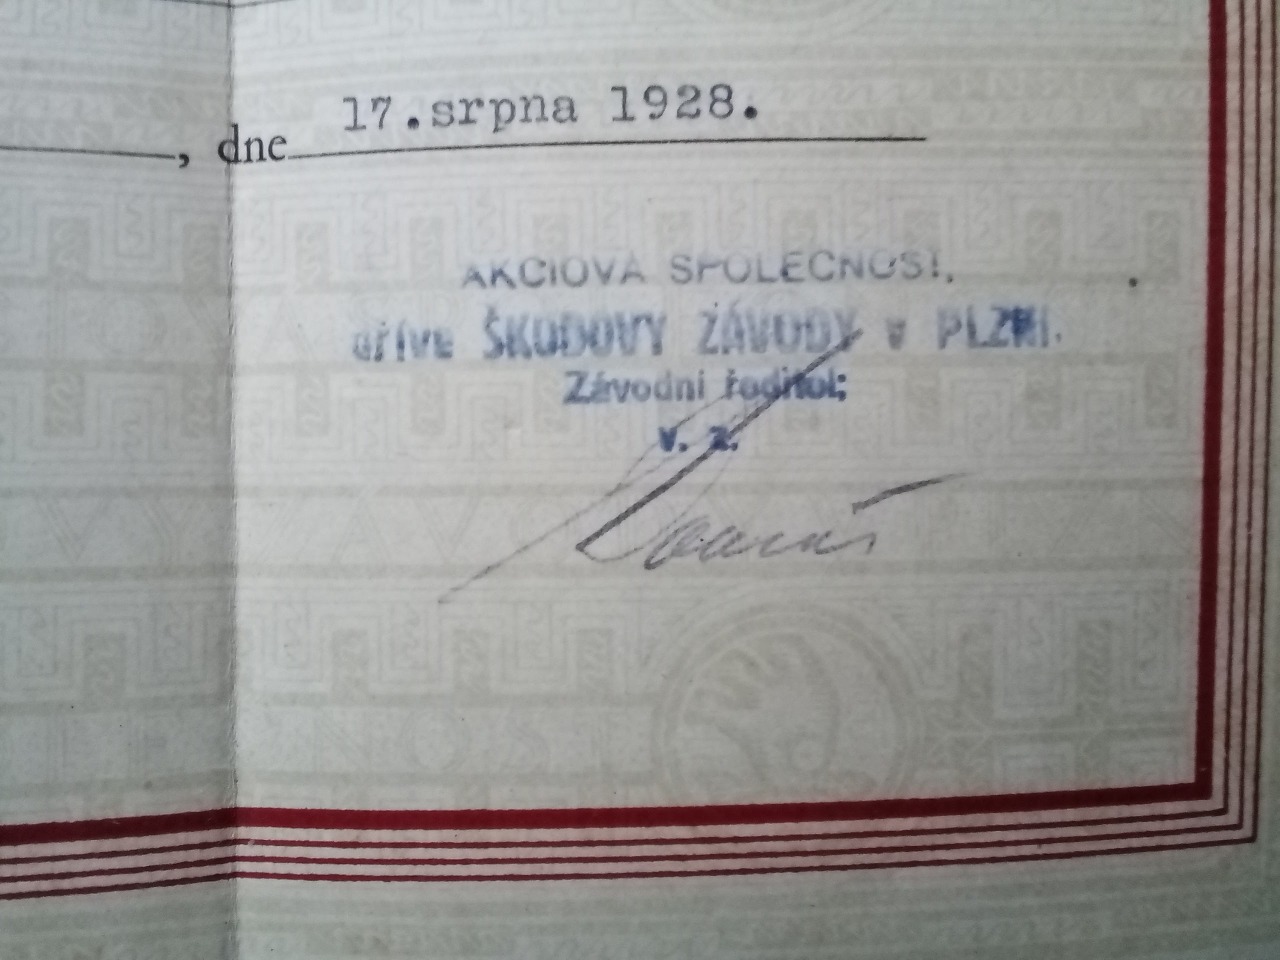 , dne 17.srpna 1928.
AKCIOVÁ SPOLEČNOST,
dříve ŠKODOVY ZÁVODY v PLZNI.
Závodní ředitel:
v. z.